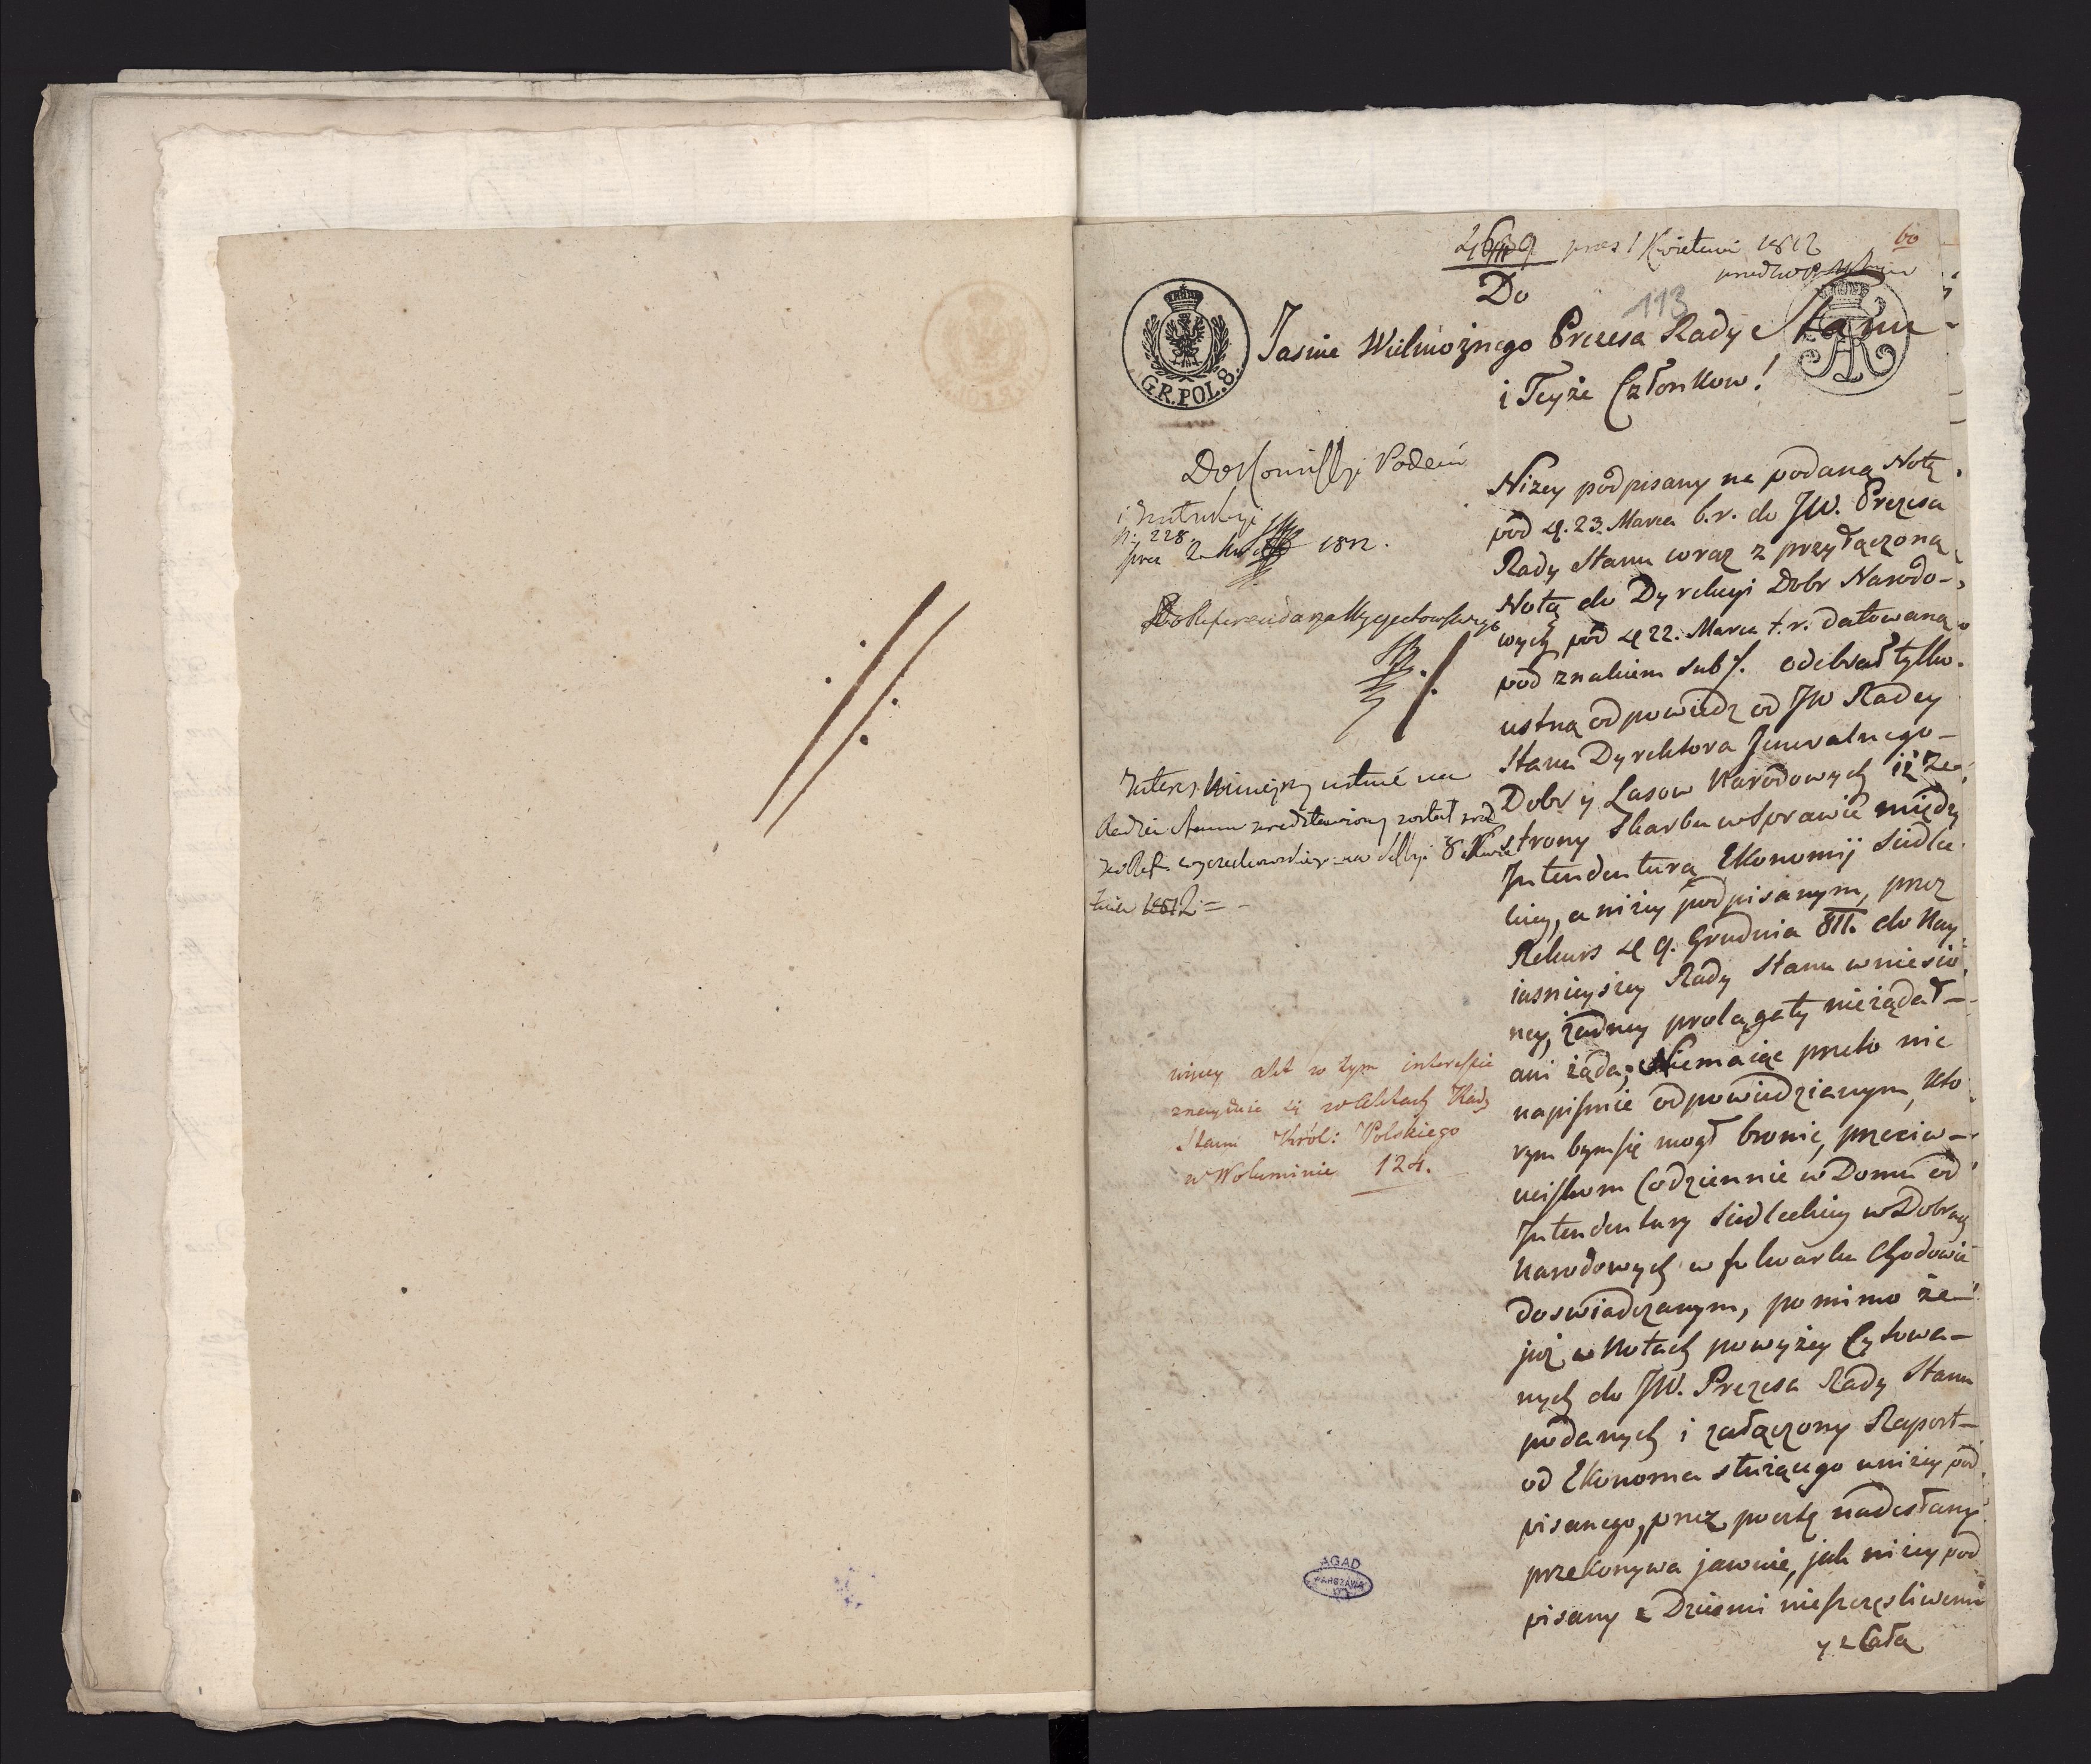 pres 1 Kwietnia 1812
60
Do
113
Jasnie Wielmożnego Prezesa Rady Stanu
i Teyże Członkow!
G.R.POL.8.
Do Kommissyi Podań
i Instrukcyi
N. 228.
pres 2 1812.
Do Referendarza Wyczechowskiego
Interes ninieyszy ustnie na
Radzie Stanu przedstawiony został przez
JW Ref. Wyczechowskiego na Sessyi 8 Kwie
tnia 1812 = -
więcey akt w tym interessie
znayduie się w Aktach Rady
Stanu Król: Polskiego
w Woluminie 124.
Niżey podpisany na podaną Notę
pod d. 23. Marca b.r. do JW. Prezesa
Rady Stanu wraz z przyłączoną
Notą do Dyrekcyi Dobr Narodo-
wych pod d 22. Marca t.r. datowaną
pod znakiem sub /. odebrał tylko
ustną odpowiedz od JW Radcy
Stanu Dyrektora Jeneralnego -
Dobr y Lasow Narodowych iż ze
strony Skarbu w Sprawie między
Intendenturą Ekonomij Siedlec
kiey, a niżey podpisanym, przez
Rekurs d 9. Grudnia 811. do Nay
iasnieyszey Rady Stanu wniesio
ney, żadney prolągaty nieżądał -
ani żąda; Niemaiąc przeto nic
napismie odpowiedzianym, kto
rym bym się mogł bronić, przeciw -
uciskom Codziennie w Domu od
Intendentury Siedleckiey w Dobrach
Narodowych w folwarku Chodowie
doswiadczanym, pomimo że
już w Notach powyżey Cytowa-
nych do JW. Prezesa Rady Stanu
podanych i załączony Raport -
od Ekonoma służącego u niżey pod
pisanego, przez pocztę nadesłany
przekonywa jawnie, jak niżey pod
pisany z Dziecmi nieszczęsliwemi
y z Całą
AGAD
WARSZAWA